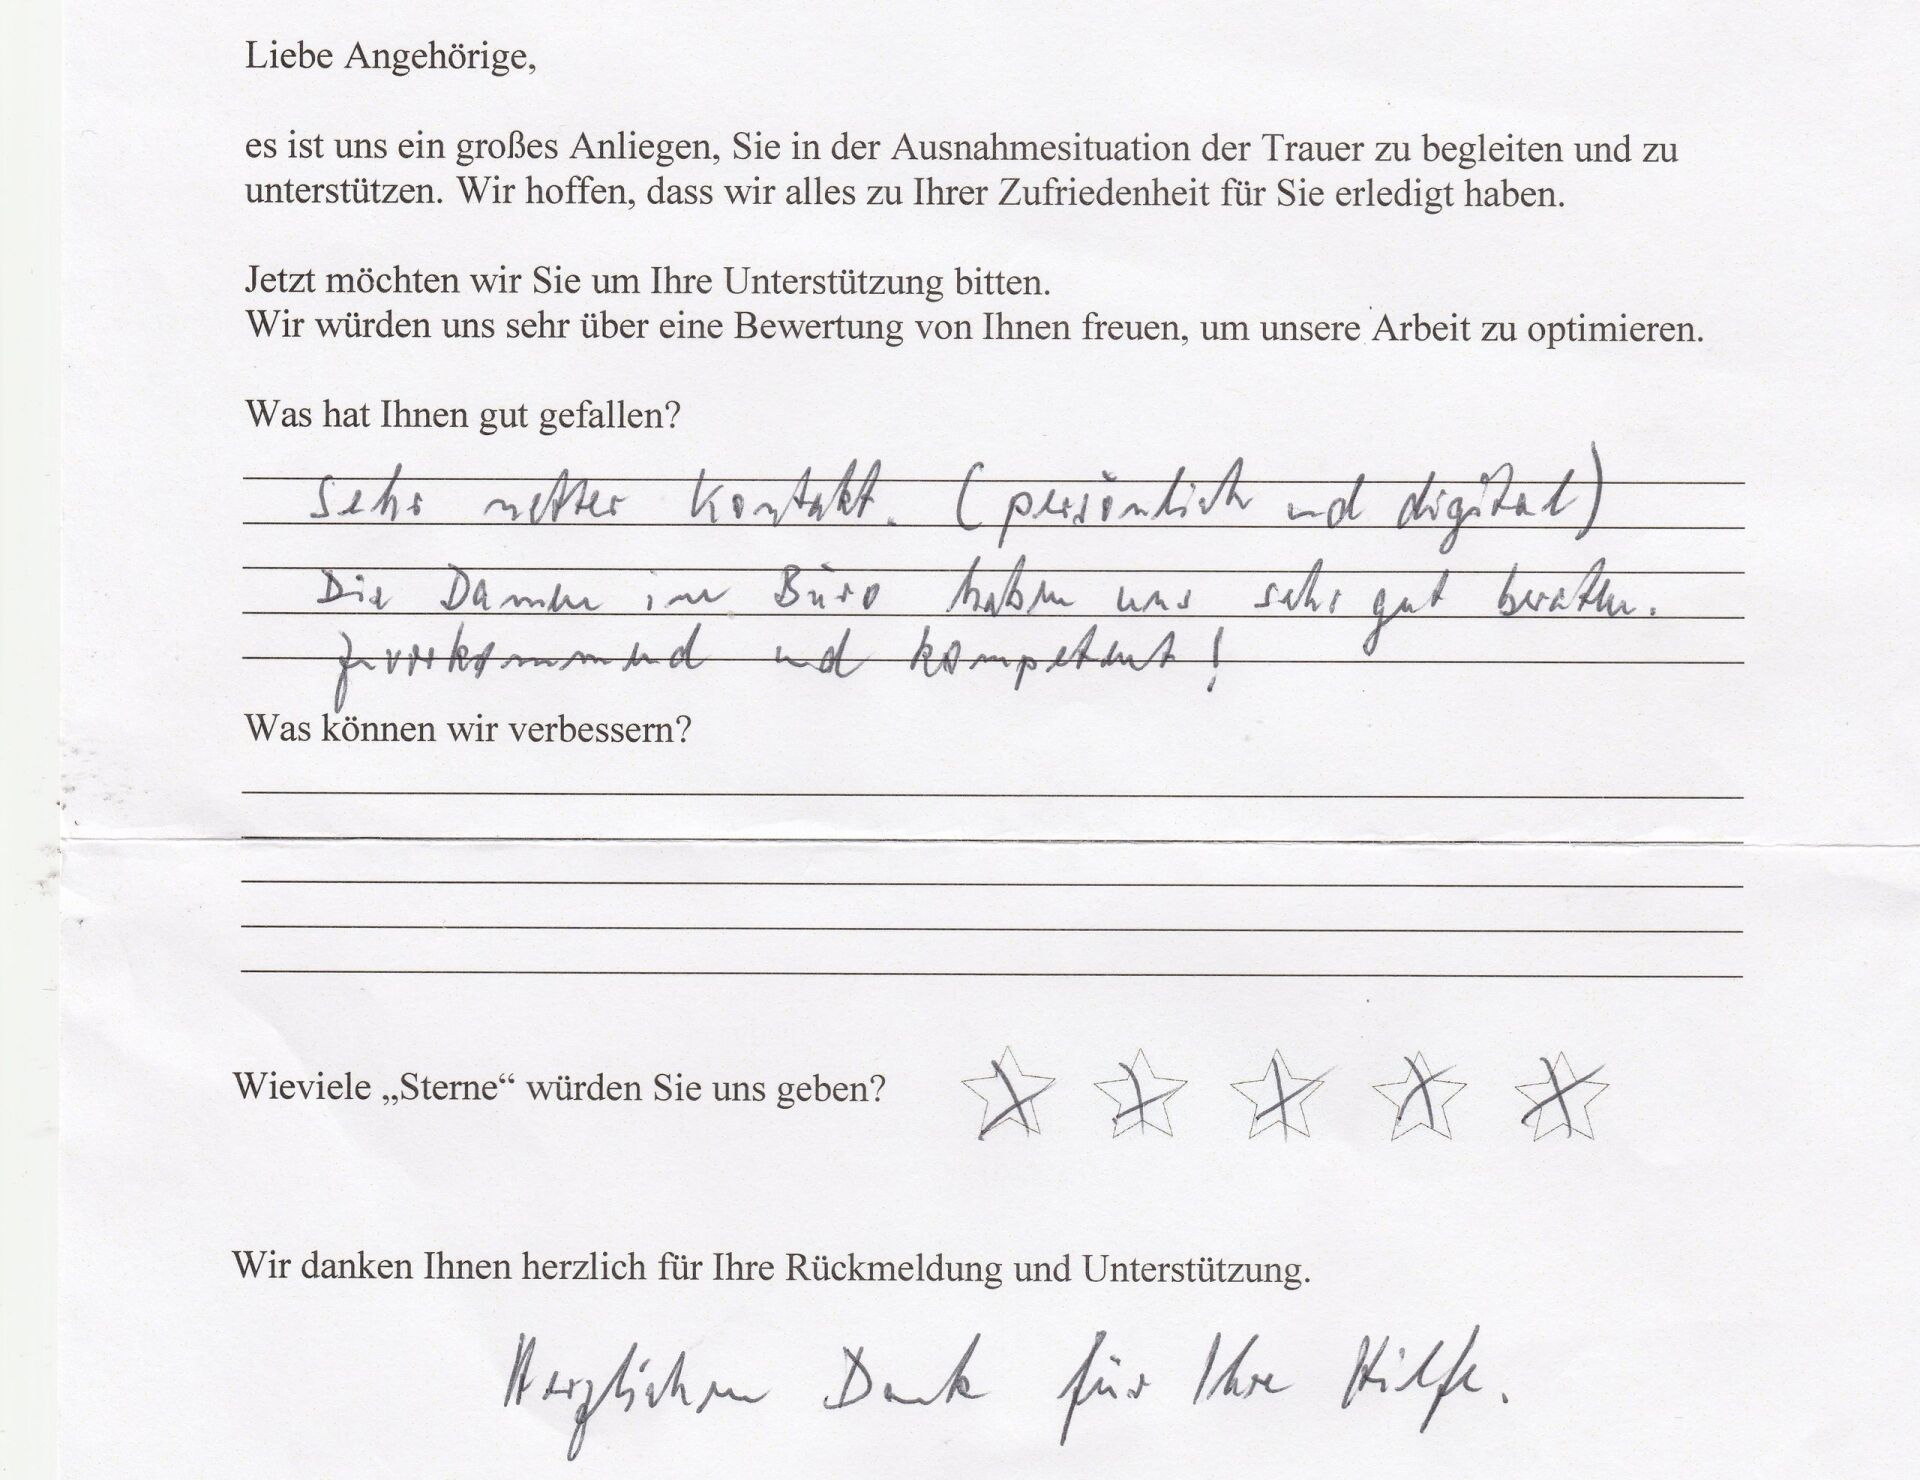 Liebe Angehörige,
es ist uns ein großes Anliegen, Sie in der Ausnahmesituation der Trauer zu begleiten und zu
unterstützen. Wir hoffen, dass wir alles zu Ihrer Zufriedenheit für Sie erledigt haben.
Jetzt möchten wir Sie um Ihre Unterstützung bitten.
Wir würden uns sehr über eine Bewertung von Ihnen freuen, um unsere Arbeit zu optimieren.
Was hat Ihnen gut gefallen?
Sehr netter Kontakt. (persönlich und digital)
Die Damen im Büro haben uns sehr gut beraten.
Zuvorkommend und kompetent!
Was können wir verbessern?
Wieviele „Sterne“ würden Sie uns geben?
Wir danken Ihnen herzlich für Ihre Rückmeldung und Unterstützung.
Herzlichen Dank für Ihre Hilfe.